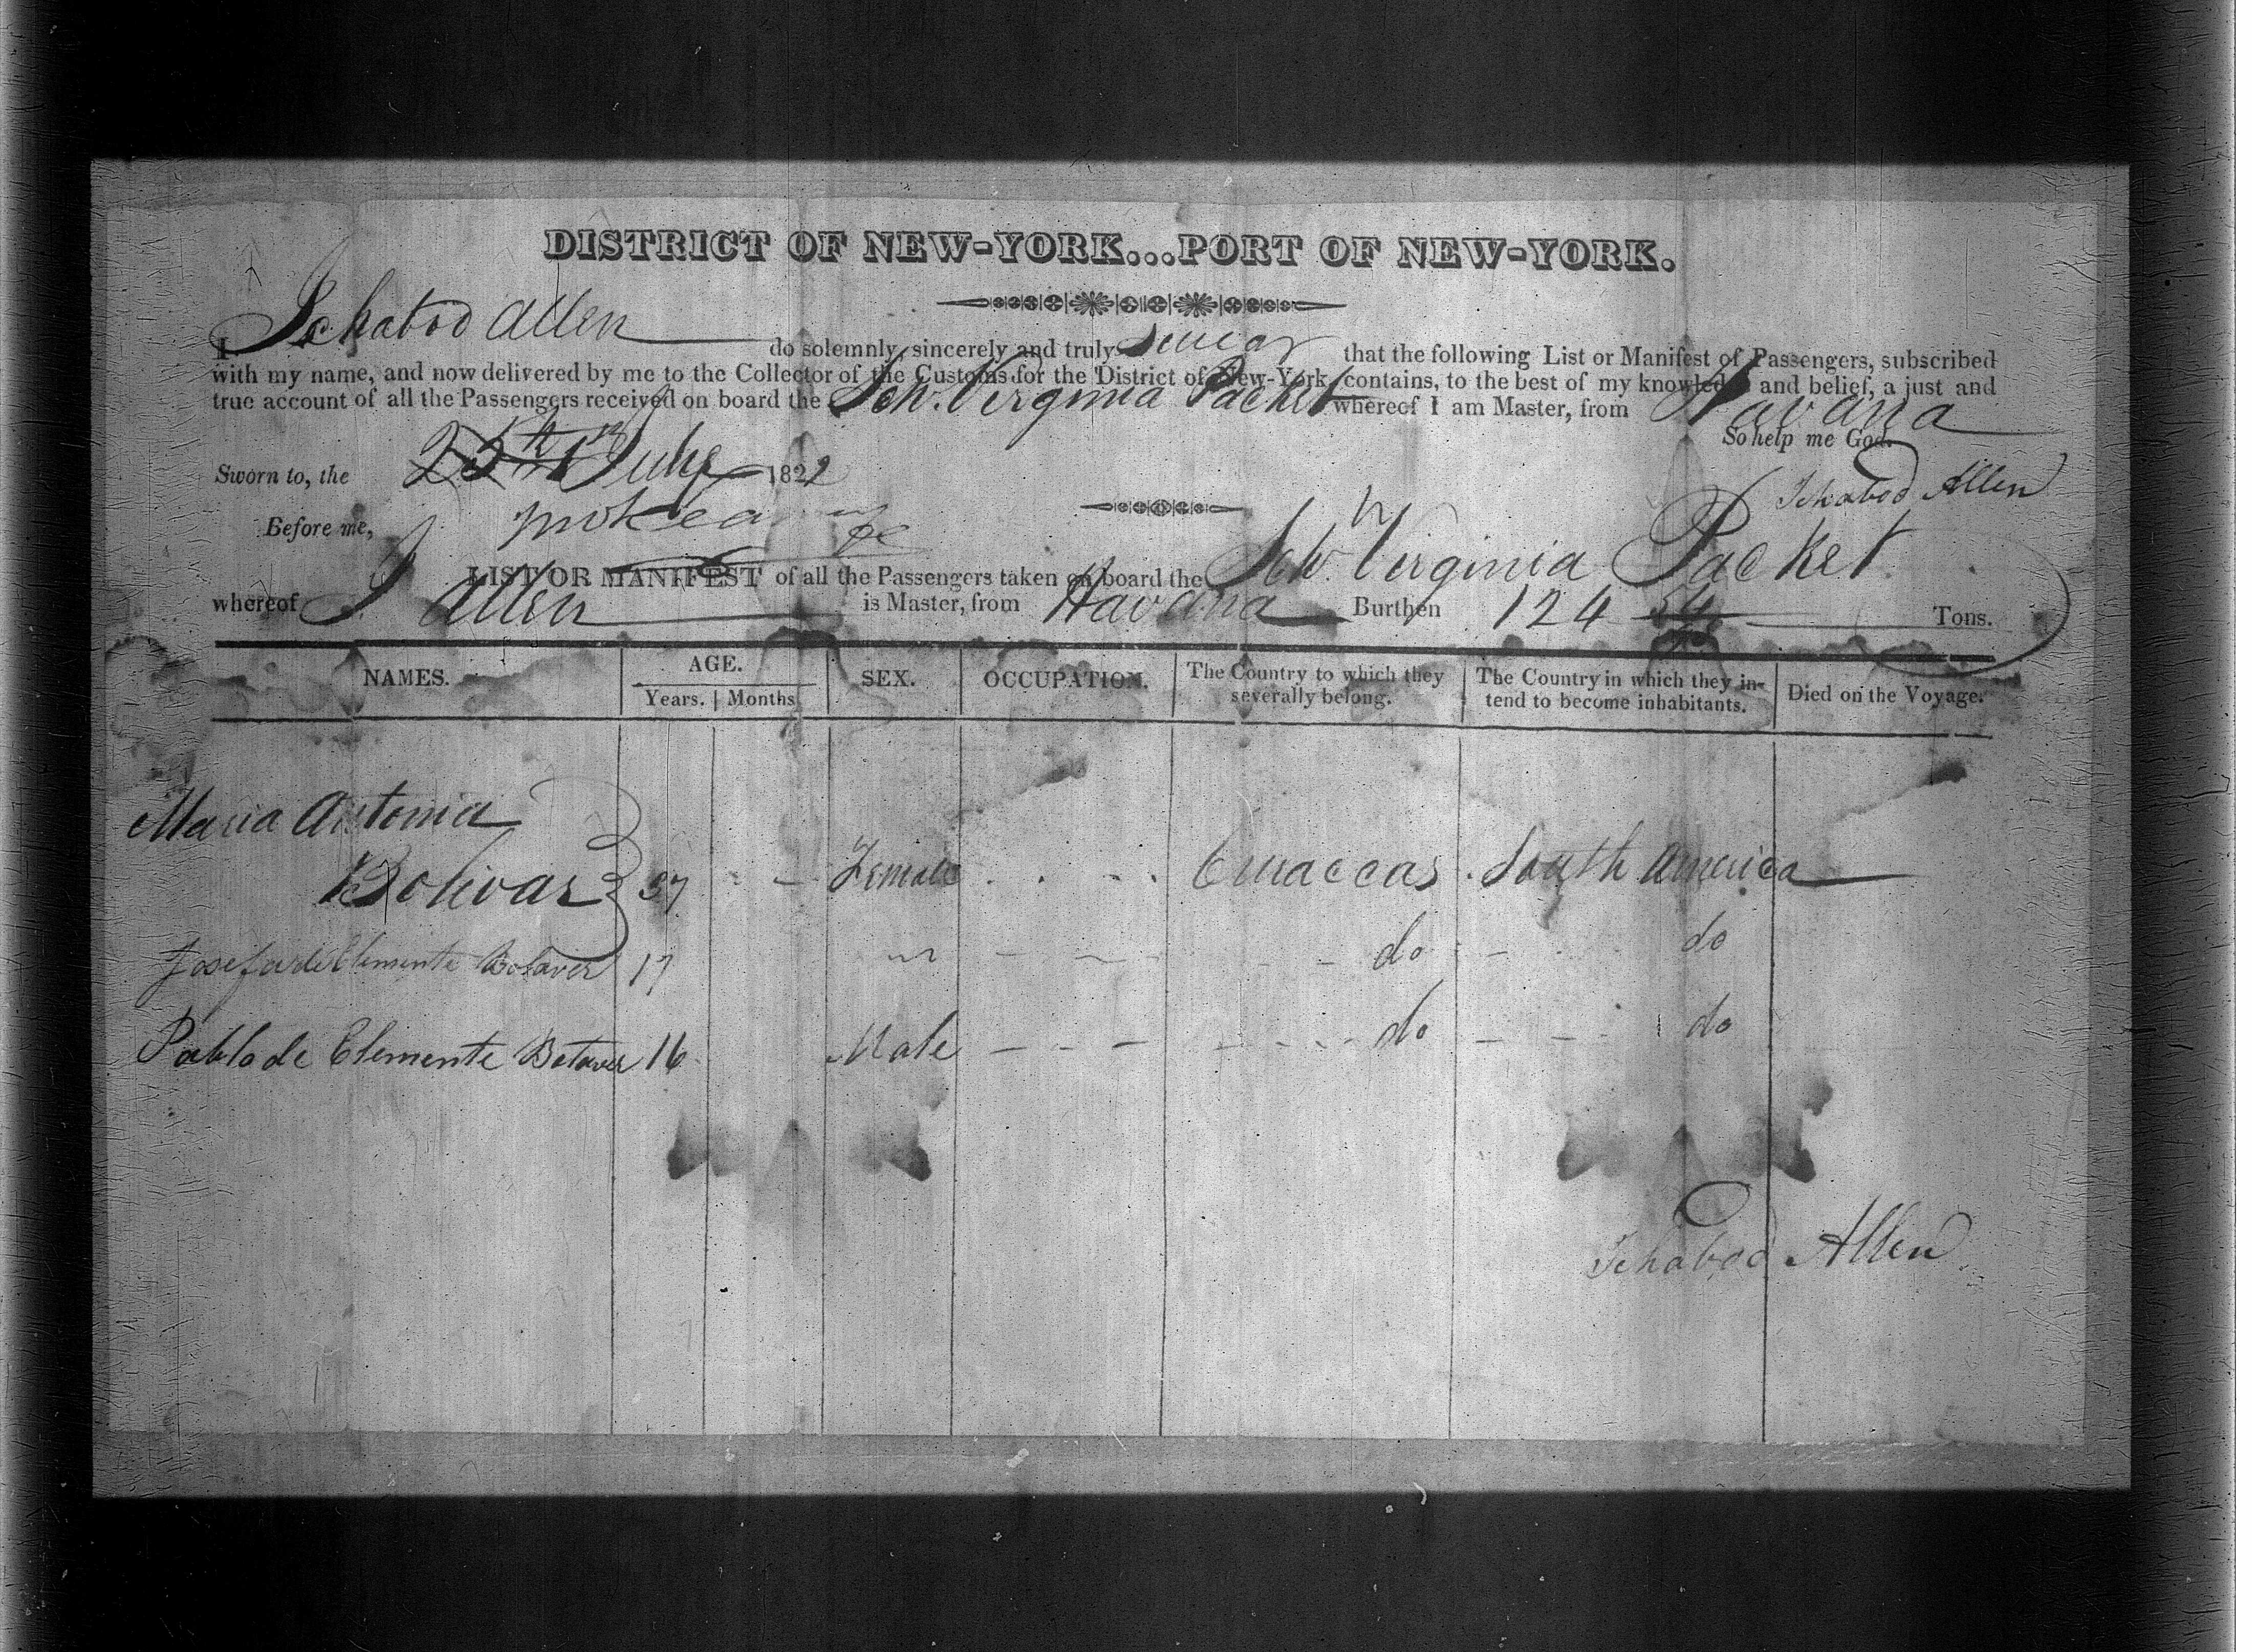 DISTRICT OF NEW-YORK...PORT OF NEW-YORK.
I Ichabod Allen do solemnly, sincerely and truly swear that the following List or Manifest of Passengers, subscribed
with my name, and now delivered by me to the Collector of the Customs for the District of New-York, contains, to the best of my knowledge and belief, a just and
true account of all the Passengers received on board the Sch. Virginia Packet whereof I am Master, from Havana
So help me God.
Sworn to, the July 1822
Ichabod Allen
Before me,
LIST OR MANIFEST of all the Passengers taken on board the Sch Virginia Packet
whereof I Allen is Master, from Havana Burthen 124 54 Tons.
NAMES. AGE. SEX. OCCUPATION. The Country to which they severally belong. The Country in which they intend to become inhabitants. Died on the Voyage.
Years. Months
Maria Antonia
Bolivar 37 Female Curaccas South America
Josefa de Clemente Bolaver 17 do do
Pablo de Clemente Bolaver 16 Male do do
Ichabod Allen